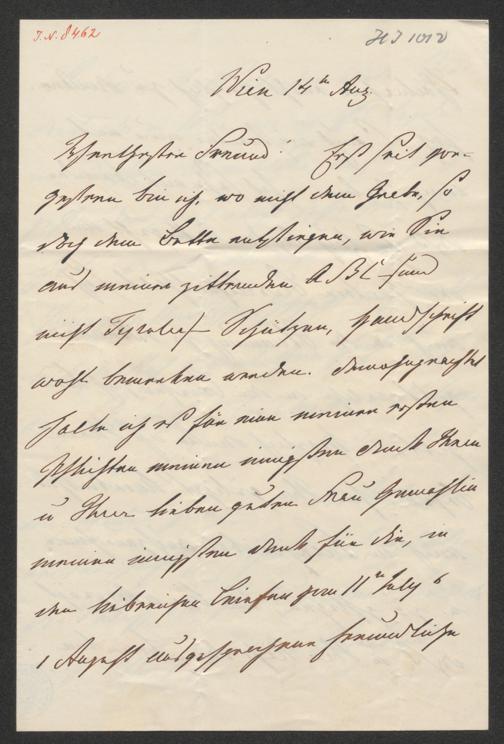 I.N. 8462
HJ 1012
Wien 14th Aug.
Verehrtester Freund! Erst seit vor-
gestern bin ich, wo nicht dem Grabe, so
doch dem Bette entstiegen, wie Sie
aus meiner zitternden ABC und
nicht Tyroler Schützen, Handschrift
wohl bemerken werden. Demohngeachtet
halte ich es für eine meiner ersten
Pflichten meinen innigsten Dank Ihnen
u Ihrer lieben guten Frau Gemahlin
meinen innigsten Dank für die, in
den liebreichen Briefen vom 11th July &
1 August ausgesprochene freundliche